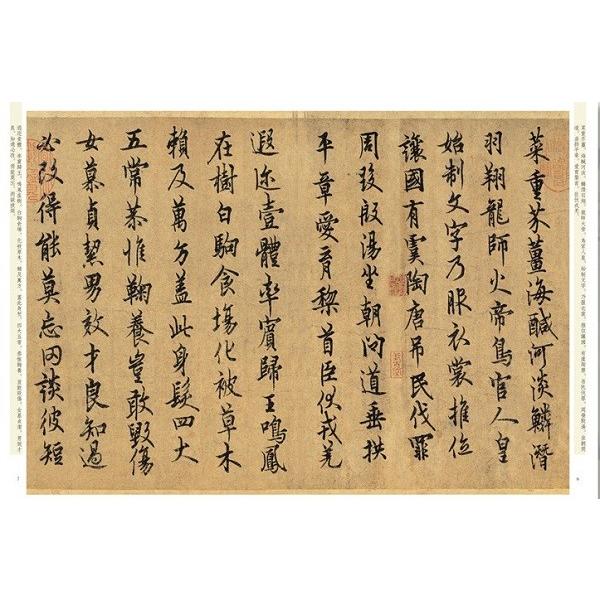 菜重芥薑海鹹河淡鱗潛
羽翔龍師火帝鳥官人皇
始制文字乃服衣裳推位
讓國有虞陶唐吊民伐罪
周發殷湯坐朝問道垂拱
平章愛育黎首臣伏戎羌
遐迩壹體率賓歸王鳴鳳
在樹白駒食場化被草木
賴及萬方蓋此身髮四大
五常恭惟鞠養豈敢毀傷
女慕貞絜男效才良知過
必改得能莫忘罔談彼短